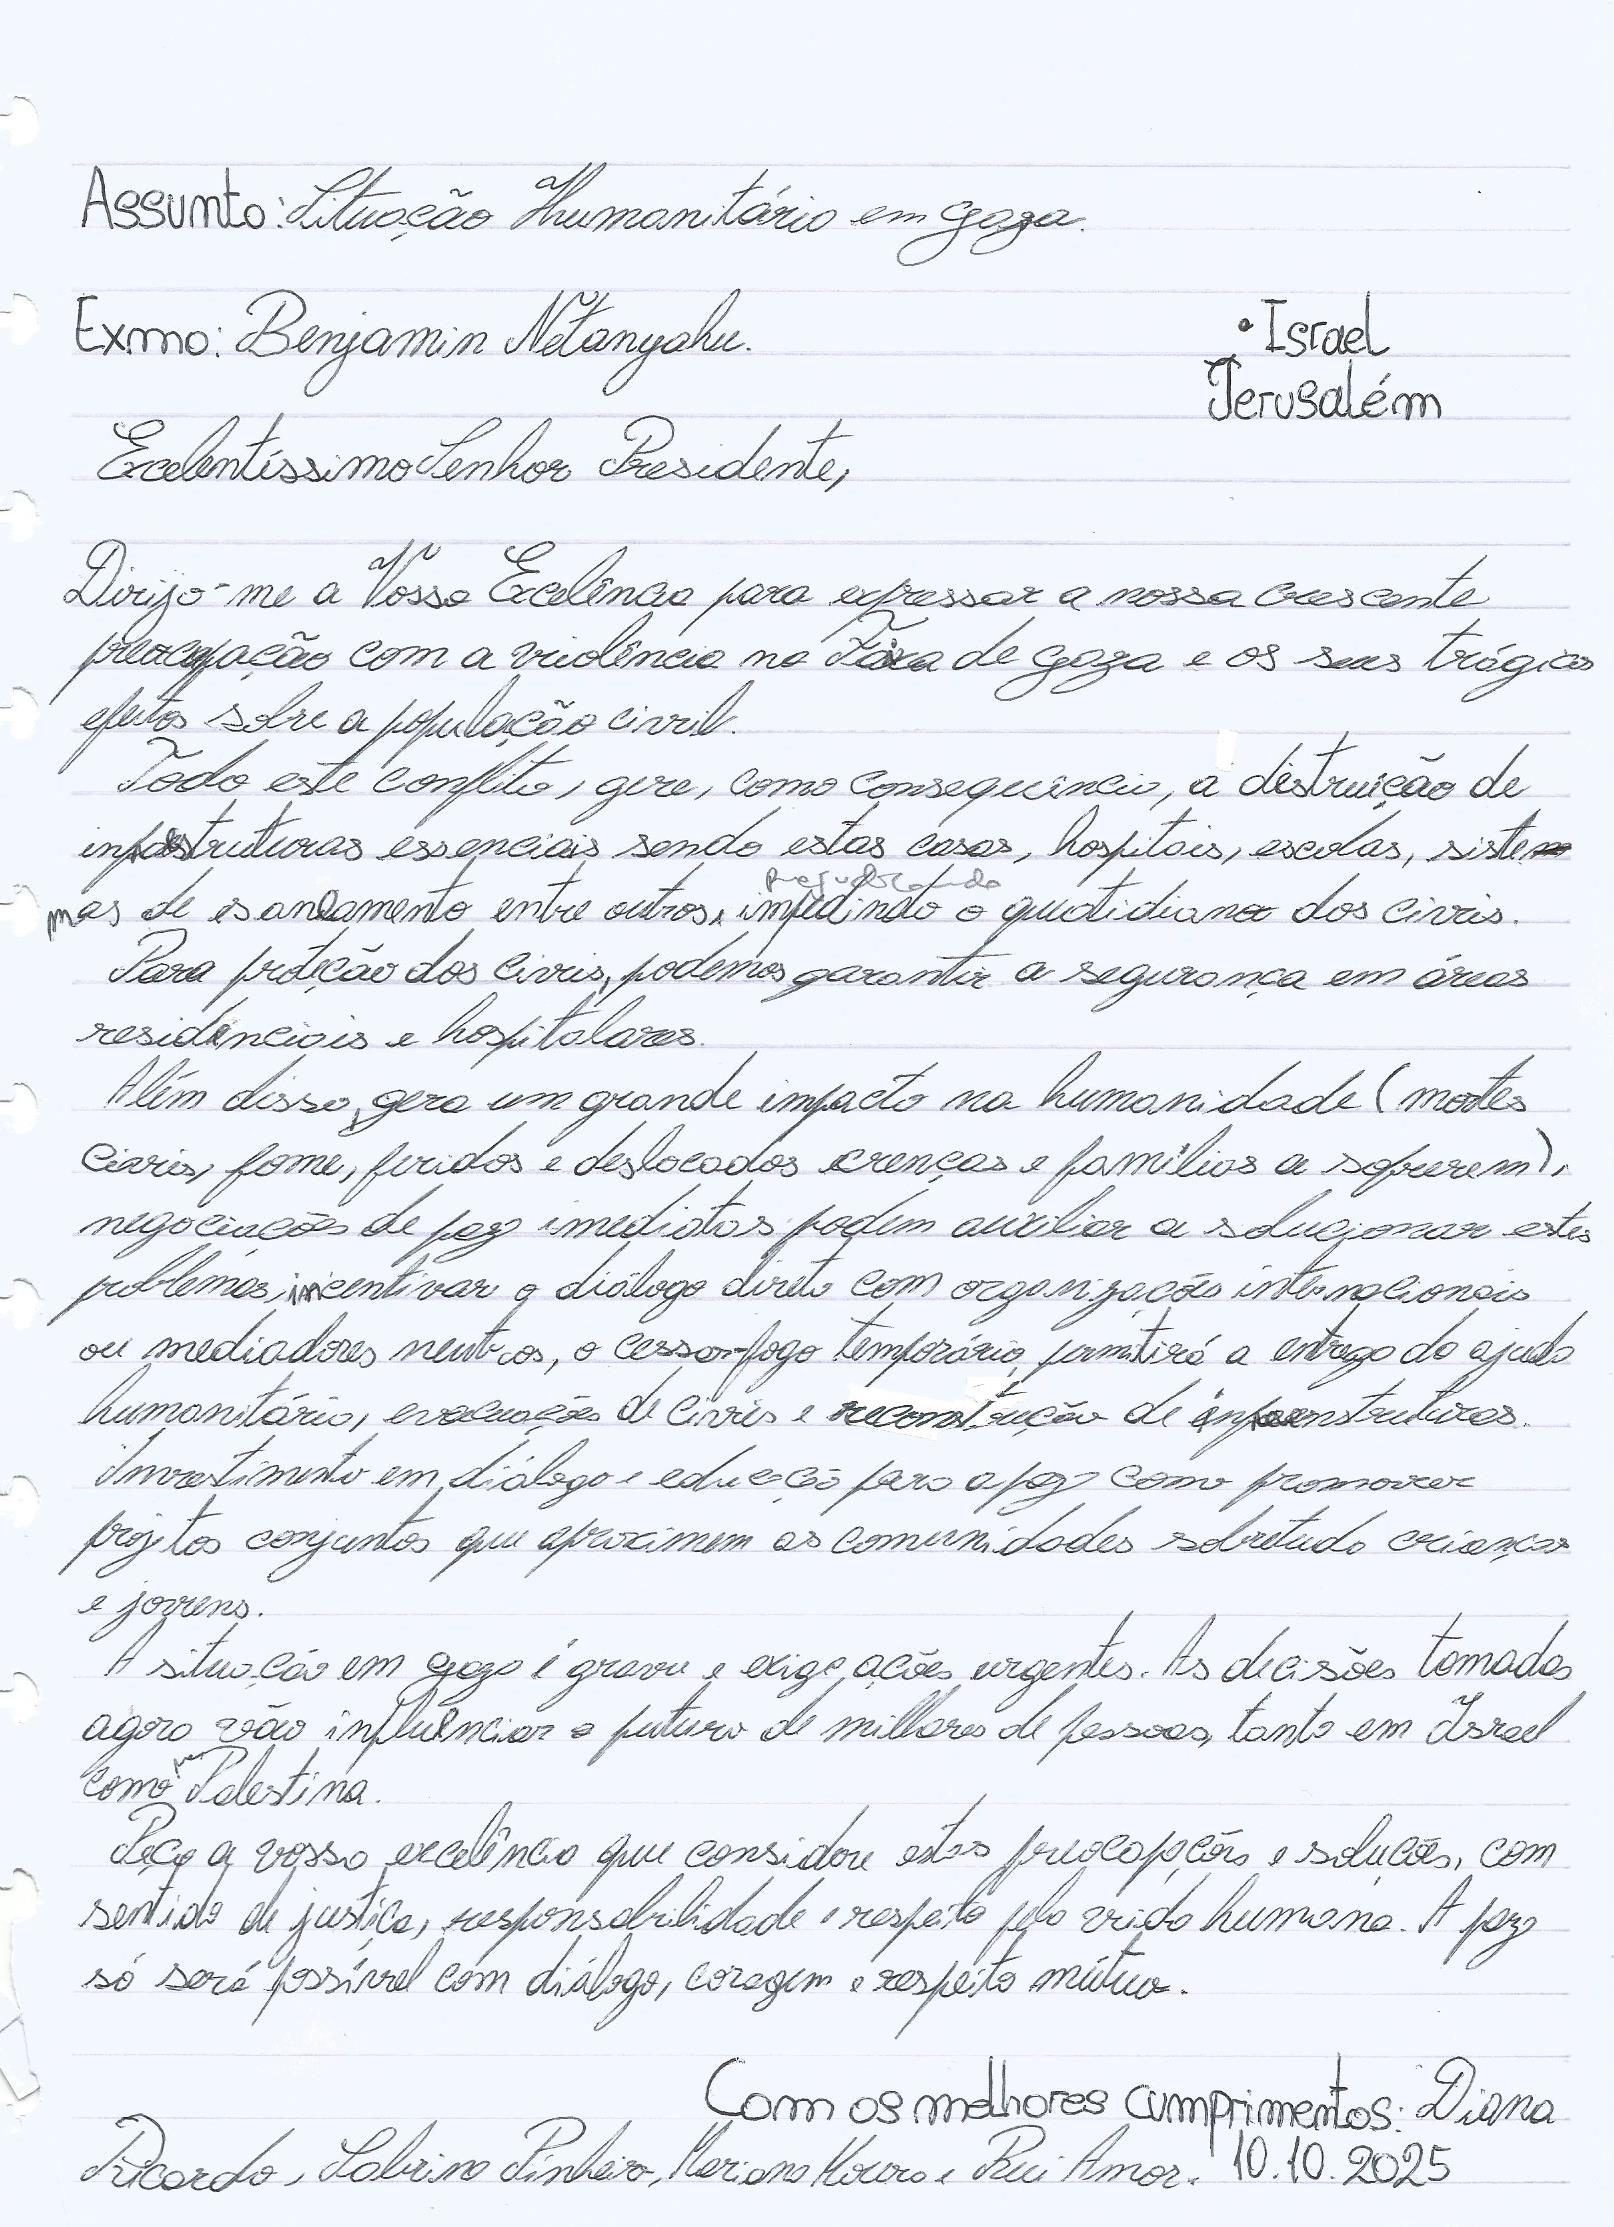 Assunto: Situação Humanitária em Gaza.
Exmo: Benjamin Netanyahu.
• Israel
Jerusalém
Excelentíssimo Senhor Presidente,
Dirijo-me a Vossa Excelência para expressar a nossa crescente
preocupação com a violência na Faixa de Gaza e os seus trágicos
efeitos sobre a população civil.
Todo este conflito, gere, como consequência, a distruição de
infraestruturas essenciais sendo estas casas, hospitais, escolas, siste
prejudicando
mas de esaneamento entre outros, impedindo o quotidiano dos civis.
Para proteção dos civis, podemos garantir a segurança em áreas
residênciais e hospitalares.
Além disso, gera um grande impacto na humanidade (mortes
civis, fome, feridos e deslocados crenças e famílias a sofrerem),
negociações de paz imediatas podem auxiliar a solucionar estes
problemas, incentivar o diálogo direto com organizações internacionais
ou mediadores neutros, o cessar-fogo temporário permitirá a entrega da ajuda
humanitária, evacuação de civis e reconstrução de infraenstruturas.
Investimento em diálogo e educação para a paz como promover
projetos conjuntos que aproximem as comunidades sobretudo crianças
e jovens.
A situação em gaza é grave e exige ações urgentes. As decisões tomadas
agora vão influênciar o futuro de milhares de pessoas, tanto em Israel
como na Palestina.
Peço a vossa excelência que considere estas preocupações e soluções, com
sentido de justiça, responsabilidade e respeito pela vida humana. A paz
só será possível com diálogo, coragem e respeito mútuo.
Com os melhores cumprimentos: Diana
Ricardo, Sabrina Pinheiro, Mariana Moura e Rui Amor. 10.10.2025